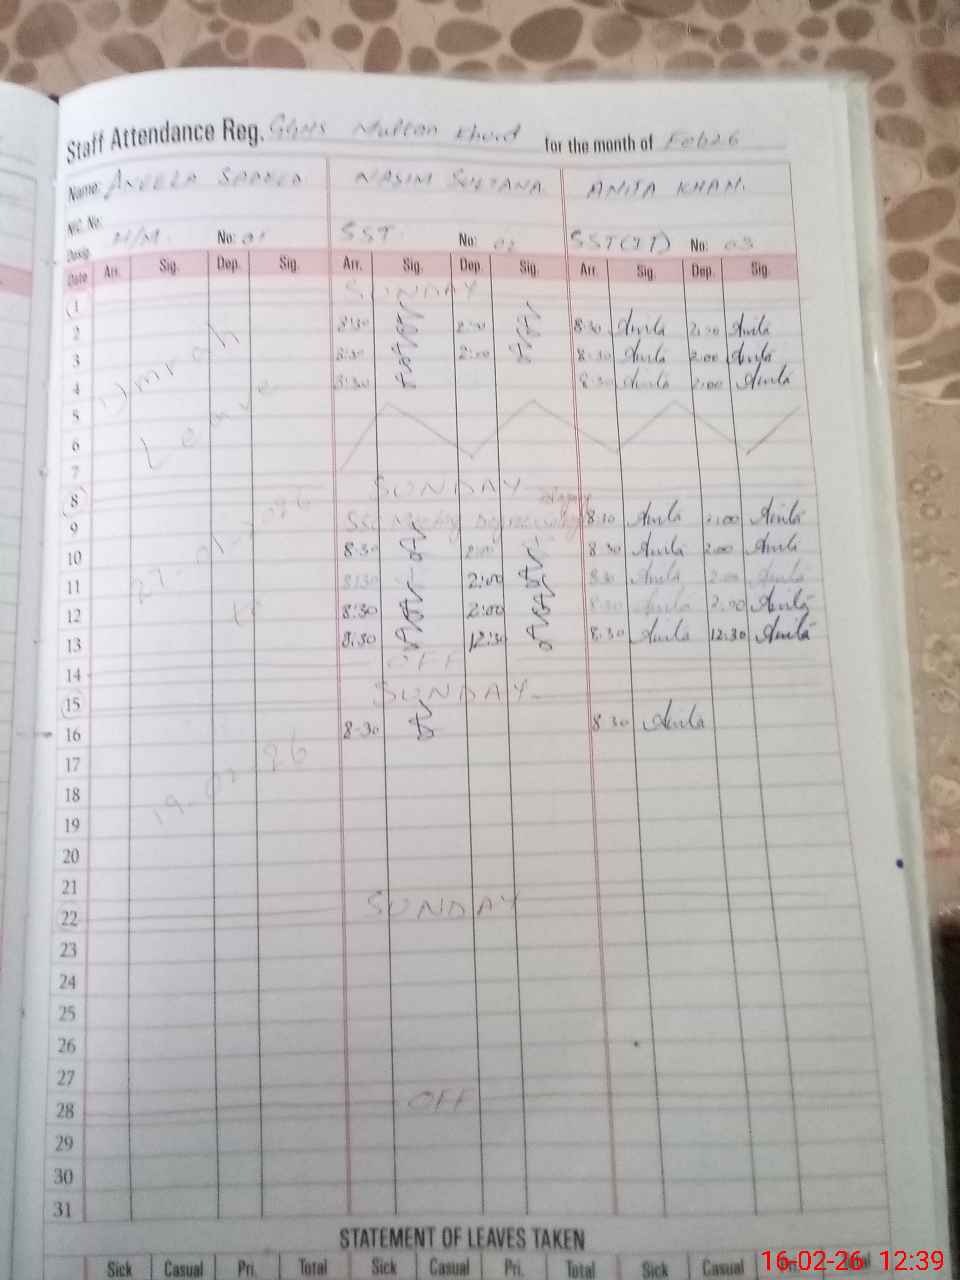 Staff Attendance Reg. GGHS Multan Khurd for the month of Feb 26
Name: ANEELA SAEED NASIM SULTANA ANITA KHAN.
NIC. No:
Desig. H/M. No: 01 SST No: 02 SST(IT) No: 03
Date Arr. Sig. Dep. Sig. Arr. Sig. Dep. Sig. Arr. Sig. Dep. Sig.
1 SUNDAY
2 8:30 2:00 8:30 2:00
3 8:30 2:00 8:30 2:00
4 8:30 8:30 2:00
5
6
7
8 SUNDAY
9 8:30 2:00
10 8:30 2:00 8:30 2:00
11 8:30 2:00 8:30 2:00
12 8:30 2:00 8:30 2:00
13 8:30 12:30 8:30 12:30
14 OFF
15 SUNDAY
16 8:30 8:30
17
18
19
20
21
22 SUNDAY
23
24
25
26
27
28 OFF
29
30
31
Umrah
Leave
27-01-2026
to
19-02-26
STATEMENT OF LEAVES TAKEN
Sick Casual Pri. Total Sick Casual Pri. Total Sick Casual Pri. Total
16-02-26 12:39